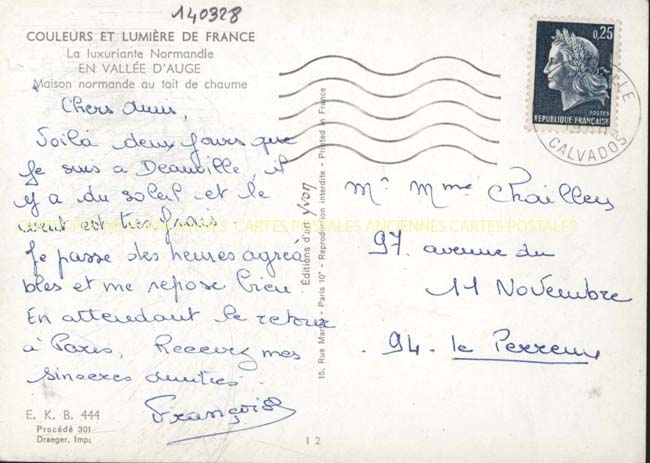 140328
COULEURS ET LUMIÈRE DE FRANCE
La luxuriante Normandie
EN VALLÉE D'AUGE
Maison normande au toit de chaume
Chers amis,
Voilà deux jours que
je suis a Deauville, il
y a du soleil et le
vent est très frais.
Je passe des heures agréa
bles et me repose bien
En attendant le retour
à Paris, Recevez mes
sincères amitiés.
Françoise
E. K. B. 444
Procédé 301
Draeger, Imp.
Editions d'art Yvon
15, Rue Martel - Paris 10e - Reproduction interdite - Printed in France
I 2
0,25
POSTES
REPUBLIQUE FRANÇAISE
CALVADOS
Mr Mme
97. avenue du
11 Novembre
94. le Perreux
CARTES POSTALES ANCIENNES CARTES POSTALES